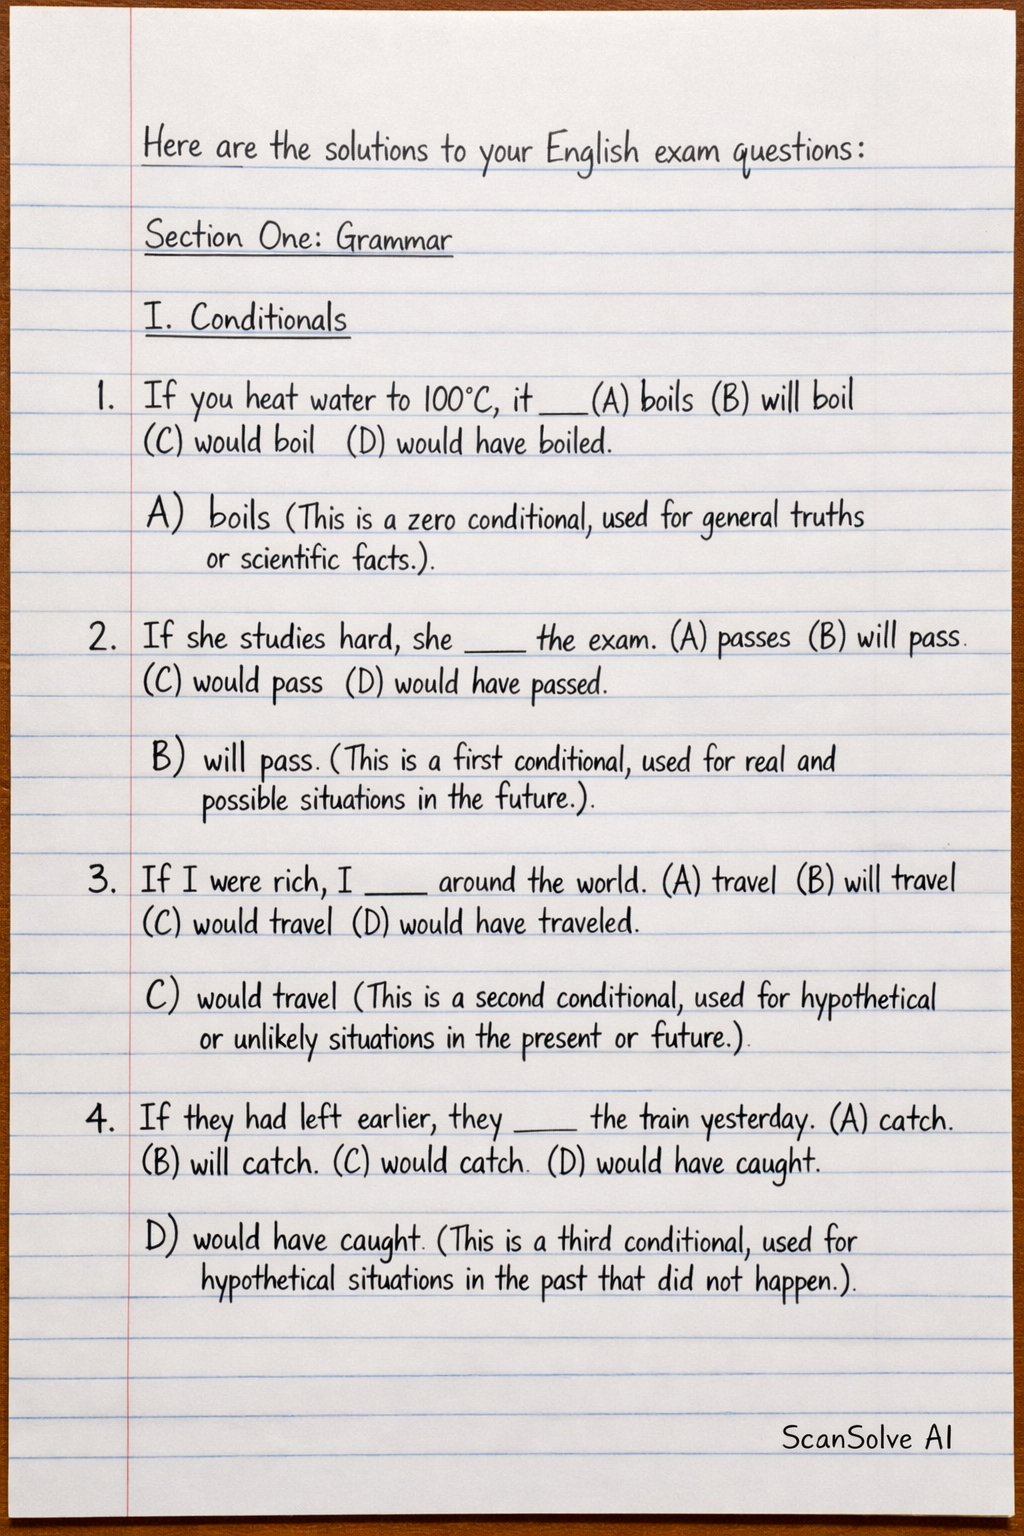 Here are the solutions to your English exam questions:
Section One: Grammar
I. Conditionals
1. If you heat water to 100°C, it ___ (A) boils (B) will boil
(C) would boil (D) would have boiled.
A) boils (This is a zero conditional, used for general truths
or scientific facts.).
2. If she studies hard, she ____ the exam. (A) passes (B) will pass.
(C) would pass (D) would have passed.
B) will pass. (This is a first conditional, used for real and
possible situations in the future.).
3. If I were rich, I ____ around the world. (A) travel (B) will travel
(C) would travel (D) would have traveled.
C) would travel (This is a second conditional, used for hypothetical
or unlikely situations in the present or future.).
4. If they had left earlier, they ____ the train yesterday. (A) catch.
(B) will catch. (C) would catch. (D) would have caught.
D) would have caught. (This is a third conditional, used for
hypothetical situations in the past that did not happen.).
ScanSolve AI